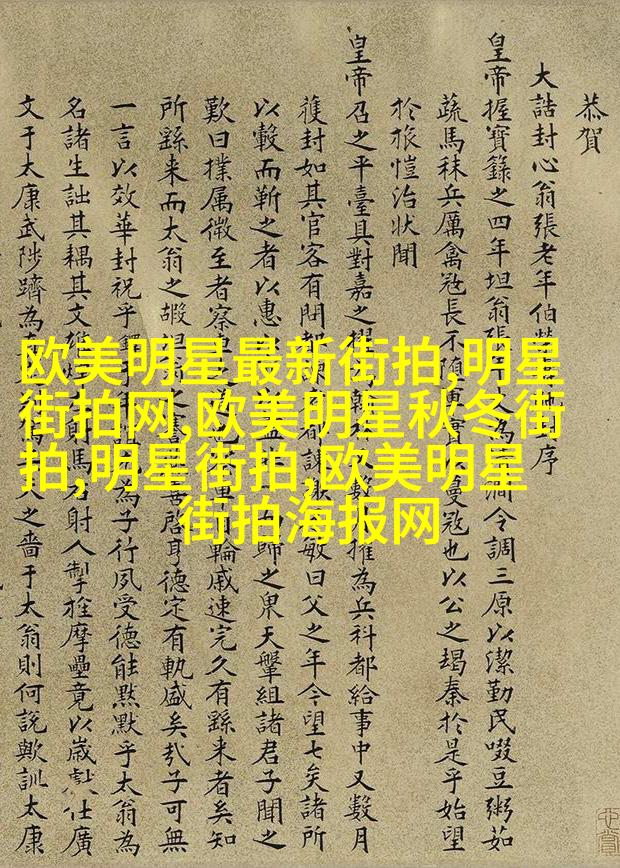 恭賀
大誥封心翁張老年伯榮序
皇帝握寶錄之四年坦翁張年丈為澗令調三原以潔勤民啜豆粥如
蔬馬秣兵厲禽冦長不隨便實蔓冦也以公之朅秦於是乎始望
於旅愷治狀聞
皇帝召之平臺具對嘉之擢數擢為兵科都給事中又數月
蕿封如其官客有問諫敏曰父之年今望七矣諸所
以轂而靳之者以惠歸之果天擊組諸君子聞之
歎曰撲属微至者察車輪戚速完久有繇来者矣知
所繇来而太翁之嘏善啓亨德定有執盛矣哉子可無
一言以效華封祝乎為子行夙受德能黙黙乎太翁為
名諸生詘其耦其文雄射馬射人掣拴摩壘竟以歲仕廣
文于太康武陟躋為之嗇于太翁則何說歟訓太康
欧美明星最新街拍,明星
街拍网,欧美明星秋冬街
拍,明星街拍,欧美明星
街拍海报网